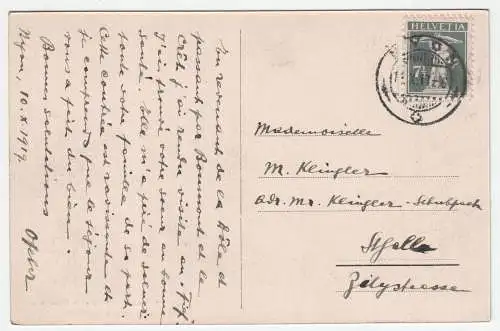 En revenant de la Dôle et
passant par Bonmont et le
Crêt j'ai rendu visite au
J'ai trouvé votre soeur en bonne
santé. Elle m'a prié de saluer
toute votre famille de sa part.
Cette contrée est ravissante et
je comprend que le séjour
vous a fait du bien.
Bonnes salutations
Nyon, 10.X.1917.
HELVETIA
7½
NYON
Mademoiselle
M. Klingler
adr. Mr. Klingler - Schulpack
St. Gallen
Zilystrasse